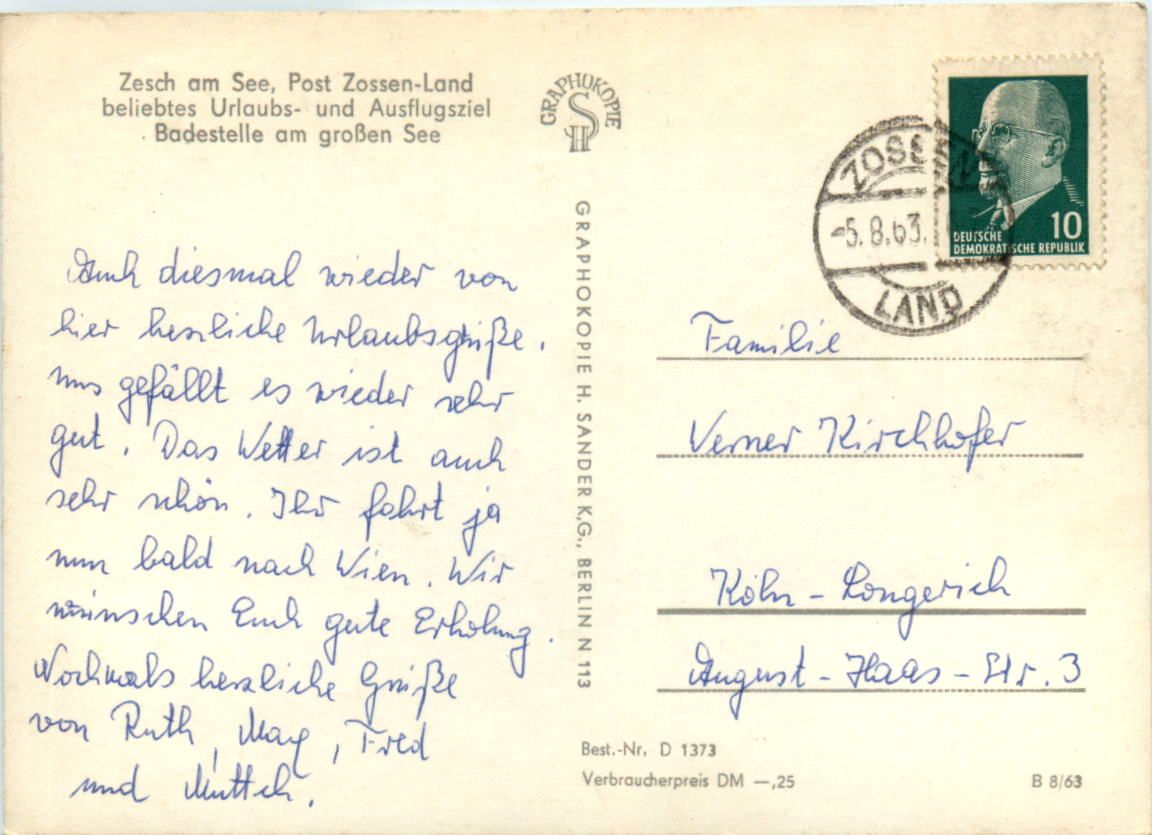 Zesch am See, Post Zossen-Land
beliebtes Urlaubs- und Ausflugsziel
Badestelle am großen See
GRAPHOKOPIE
SH
GRAPHOKOPIE H. SANDER K.G., BERLIN N 113
ZOSSEN
-5.8.63.
LAND
10
DEUTSCHE
DEMOKRATISCHE REPUBLIK
Auch diesmal wieder von
hier herzliche Urlaubsgrüße.
Uns gefällt es wieder sehr
gut. Das Wetter ist auch
sehr schön. Ihr fahrt ja
nun bald nach Wien. Wir
wünschen Euch gute Erholung.
Nochmals herzliche Grüße
von Ruth, , Fred
und Muttch.
Familie
Werner Kirchhofer
Köln - Longerich
August - Haas - Str. 3
Best.-Nr. D 1373
Verbraucherpreis DM —,25
B 8/63